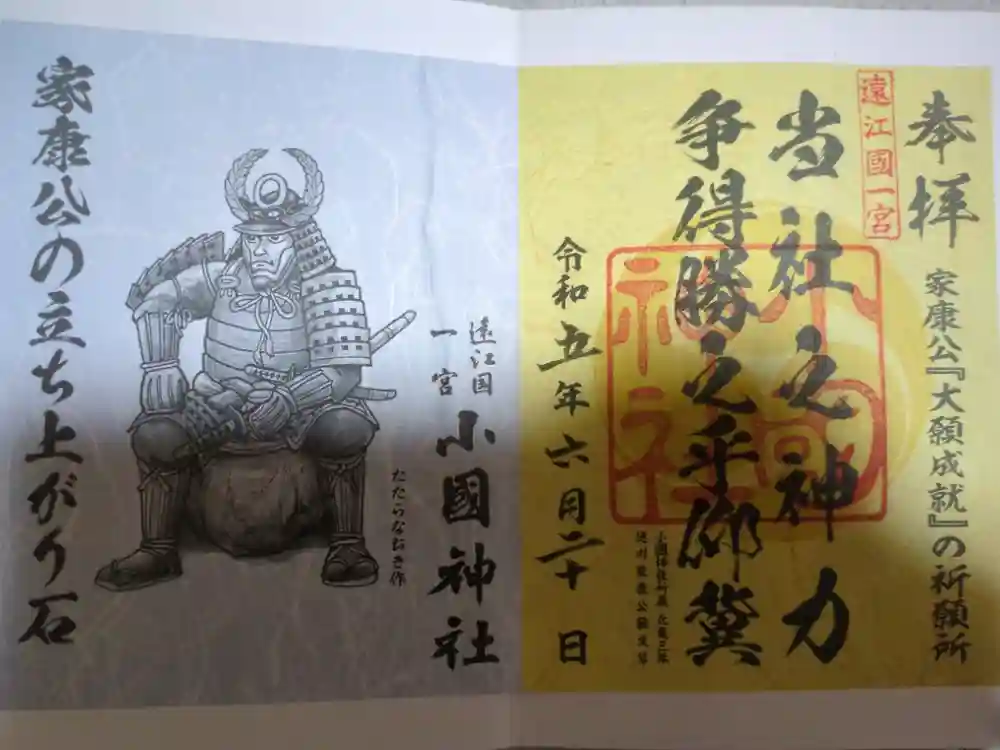 奉拝
家康公『大願成就』の祈願所
遠江國一宮
当社之神力
争得勝之乎仰冀
小國神社
令和五年六月二十日
遠江国
一宮
小國神社
たたらなおき作
家康公の立ち上がり石